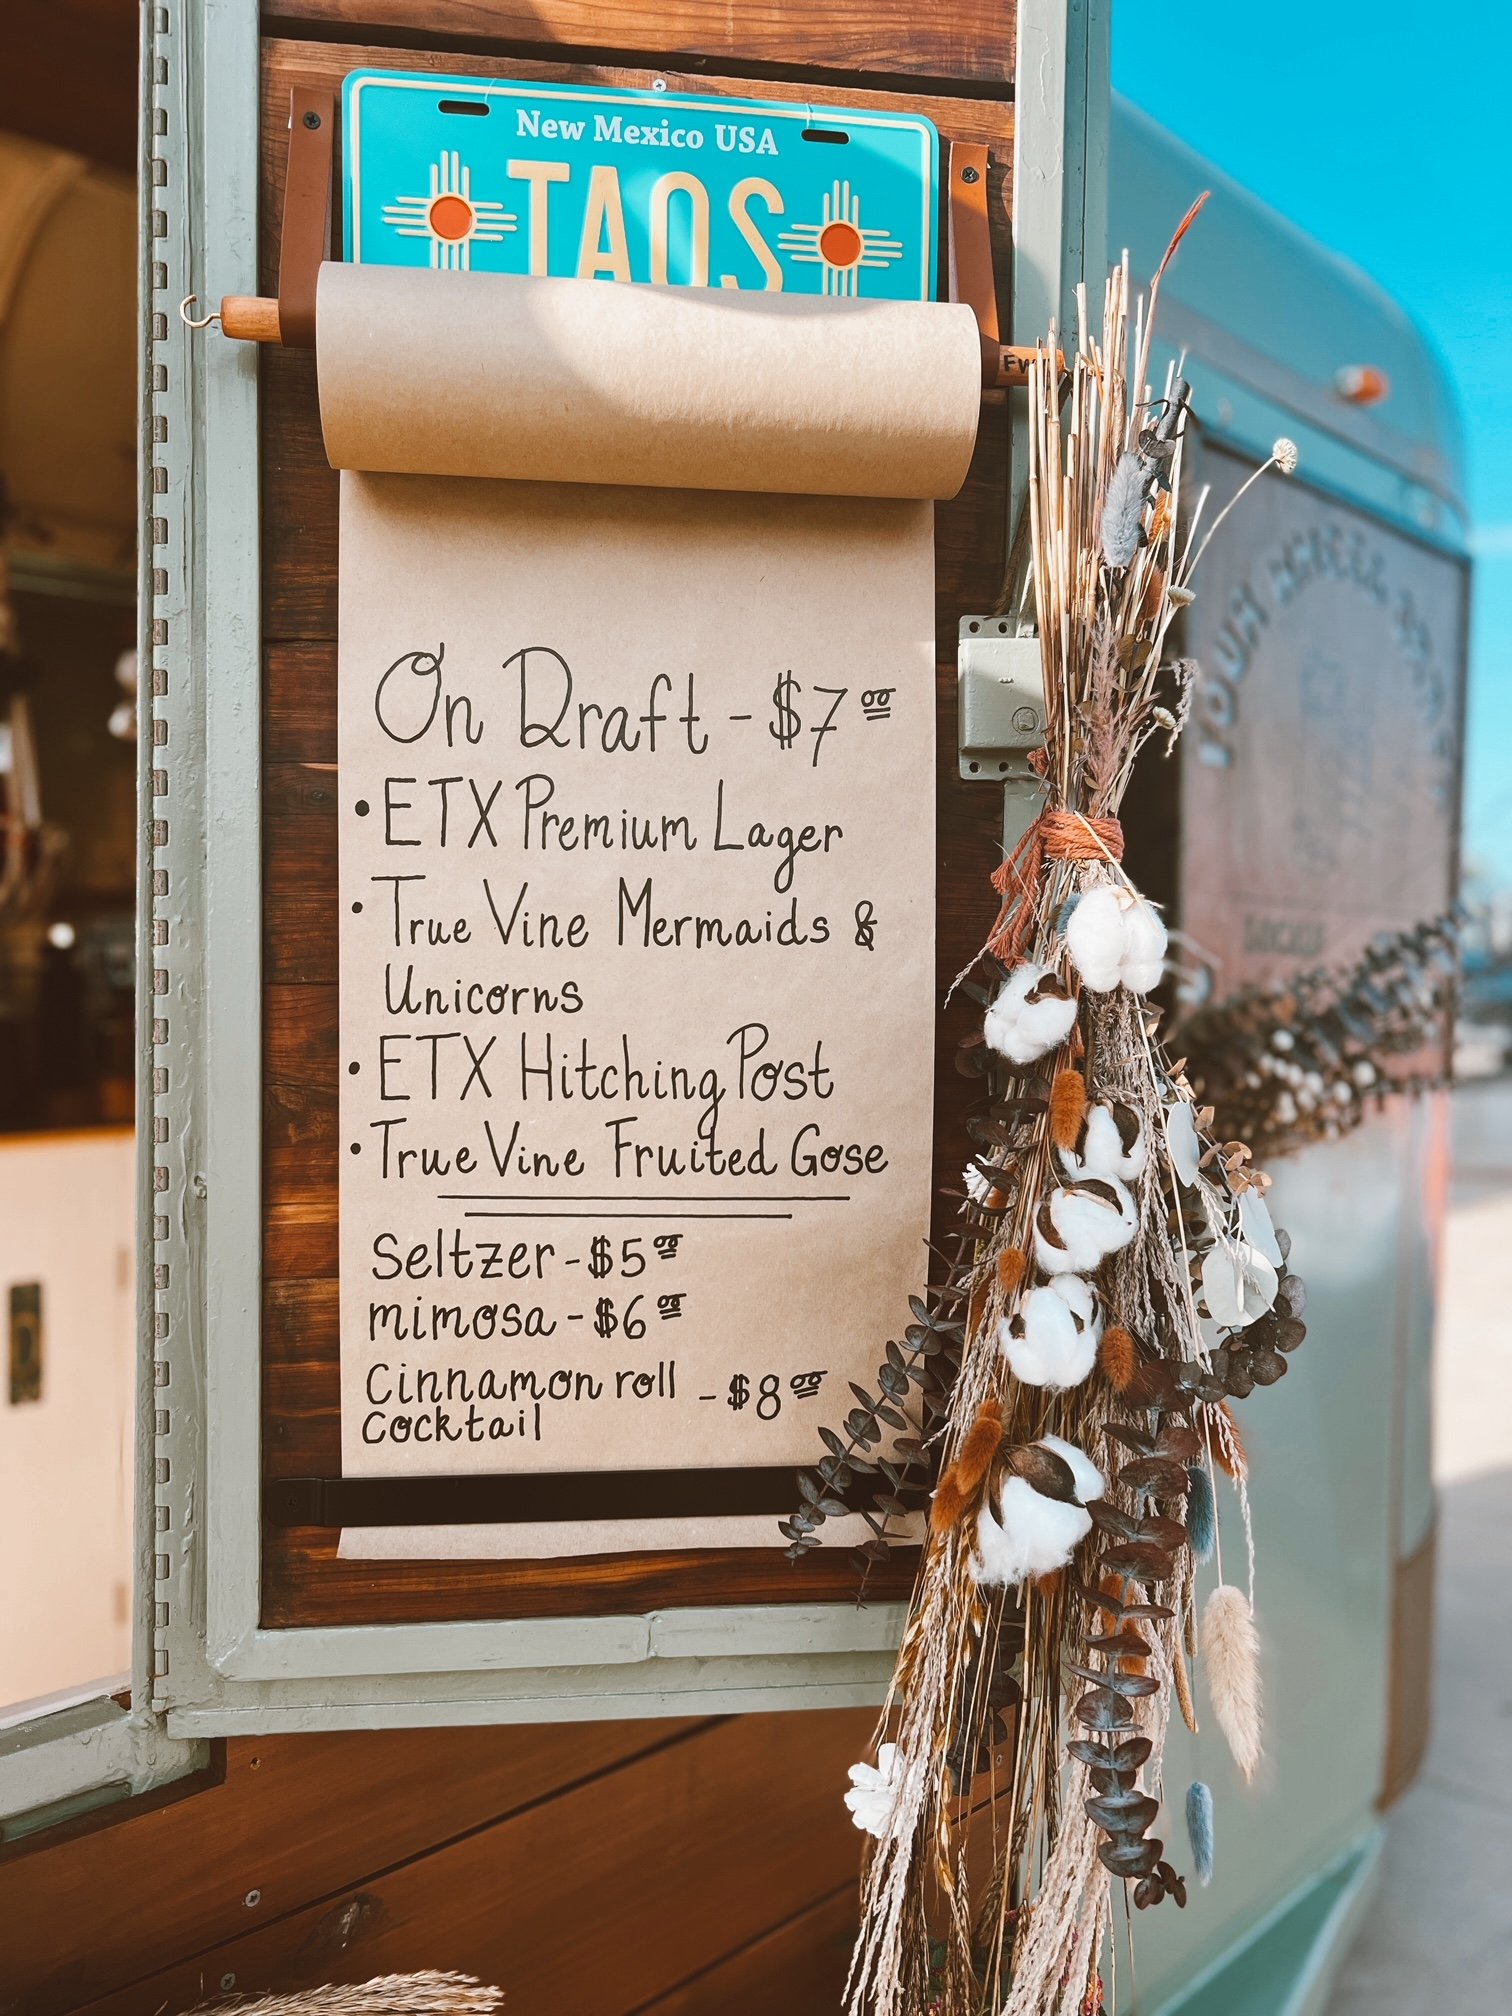 New Mexico USA
TAOS
On Draft - $7.00
• ETX Premium Lager
• True Vine Mermaids &
Unicorns
• ETX Hitching Post
• True Vine Fruited Gose
Seltzer - $5.00
mimosa - $6.00
Cinnamon roll - $8.00
Cocktail